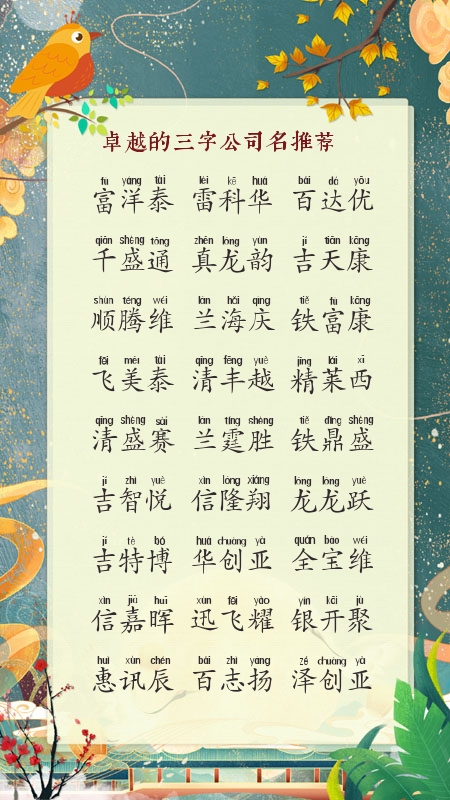 卓越的三字公司名推荐
fù yáng tài léi kē huá bǎi dá yōu
富洋泰 雷科华 百达优
qiān shèng tōng zhēn lóng yùn jí tiān kāng
千盛通 真龙韵 吉天康
shùn téng wéi lán hǎi qìng tiě fù kāng
顺腾维 兰海庆 铁富康
fēi měi tài qīng fēng yuè jīng lái xī
飞美泰 清丰越 精莱西
qīng shèng sài lán tíng shèng tiě dǐng shèng
清盛赛 兰霆胜 铁鼎盛
jí zhì yuè xìn lóng xiáng lóng lóng yuè
吉智悦 信隆翔 龙龙跃
jí tè bó huá chuàng yà quán bǎo wéi
吉特博 华创亚 全宝维
xìn jiā huī xùn fēi yào yín kāi jù
信嘉晖 迅飞耀 银开聚
huì xùn chén bǎi zhì yáng zé chuàng yà
惠讯辰 百志扬 泽创亚